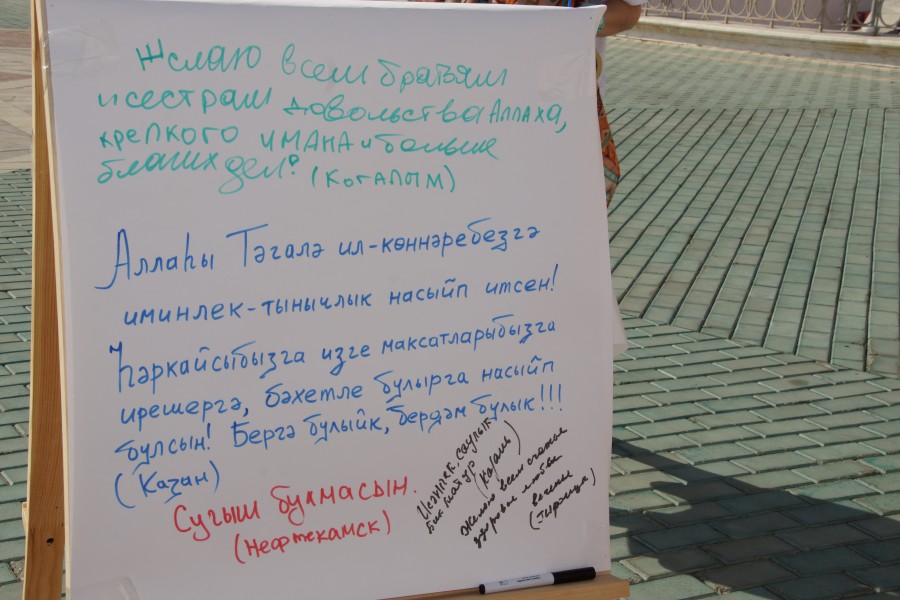 Желаю всем братьям
и сестрам довольства Аллаха,
крепкого имана и больше
благих дел! (Когалым)
Аллаһы Тәгалә ил-көннәребезгә
иминлек-тынычлык насыйп итсен!
Һәркайсыбызга изге максатларыбызга
ирешергә, бәхетле булырга насыйп
булсын! Бергә булыйк, бердәм булык!!!
(Казан)
Сугыш булмасын.
(Нефтекамск)
саулык
(Казань)
Желаю всем счастья
здоровье любви